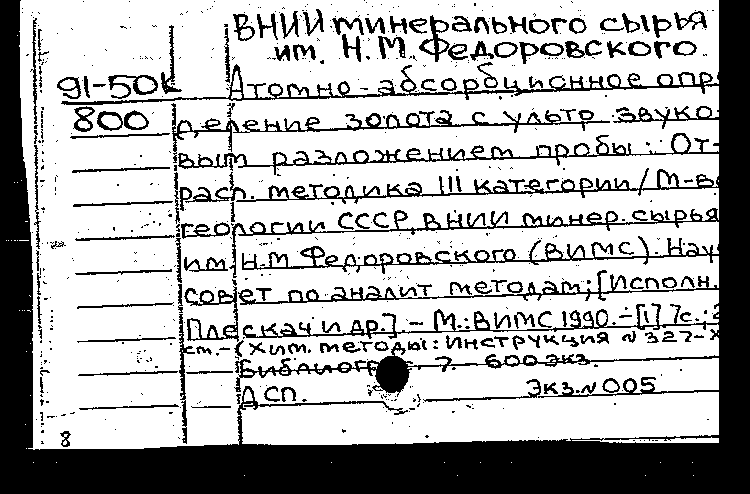 ВНИИ минерального сырья
им. Н.М. Федоровского.
91-50к Атомно-абсорбционное опре
800 деление золота с ультразвуко-
вым разложением пробы: От-
расл. методика III категории/М-во
геологии СССР, ВНИИ минер. сырья
им. Н.М Федоровского (ВИМС). Науч
совет по аналит методам; [Исполн.
Плескач и др.]. - М.: ВИМС, 1990. - [1] 7с.;
см. - (Хим. методы: инструкция № 327-Х
Библиогр. 7. 600 экз.
ДСП. Экз. № 005
8